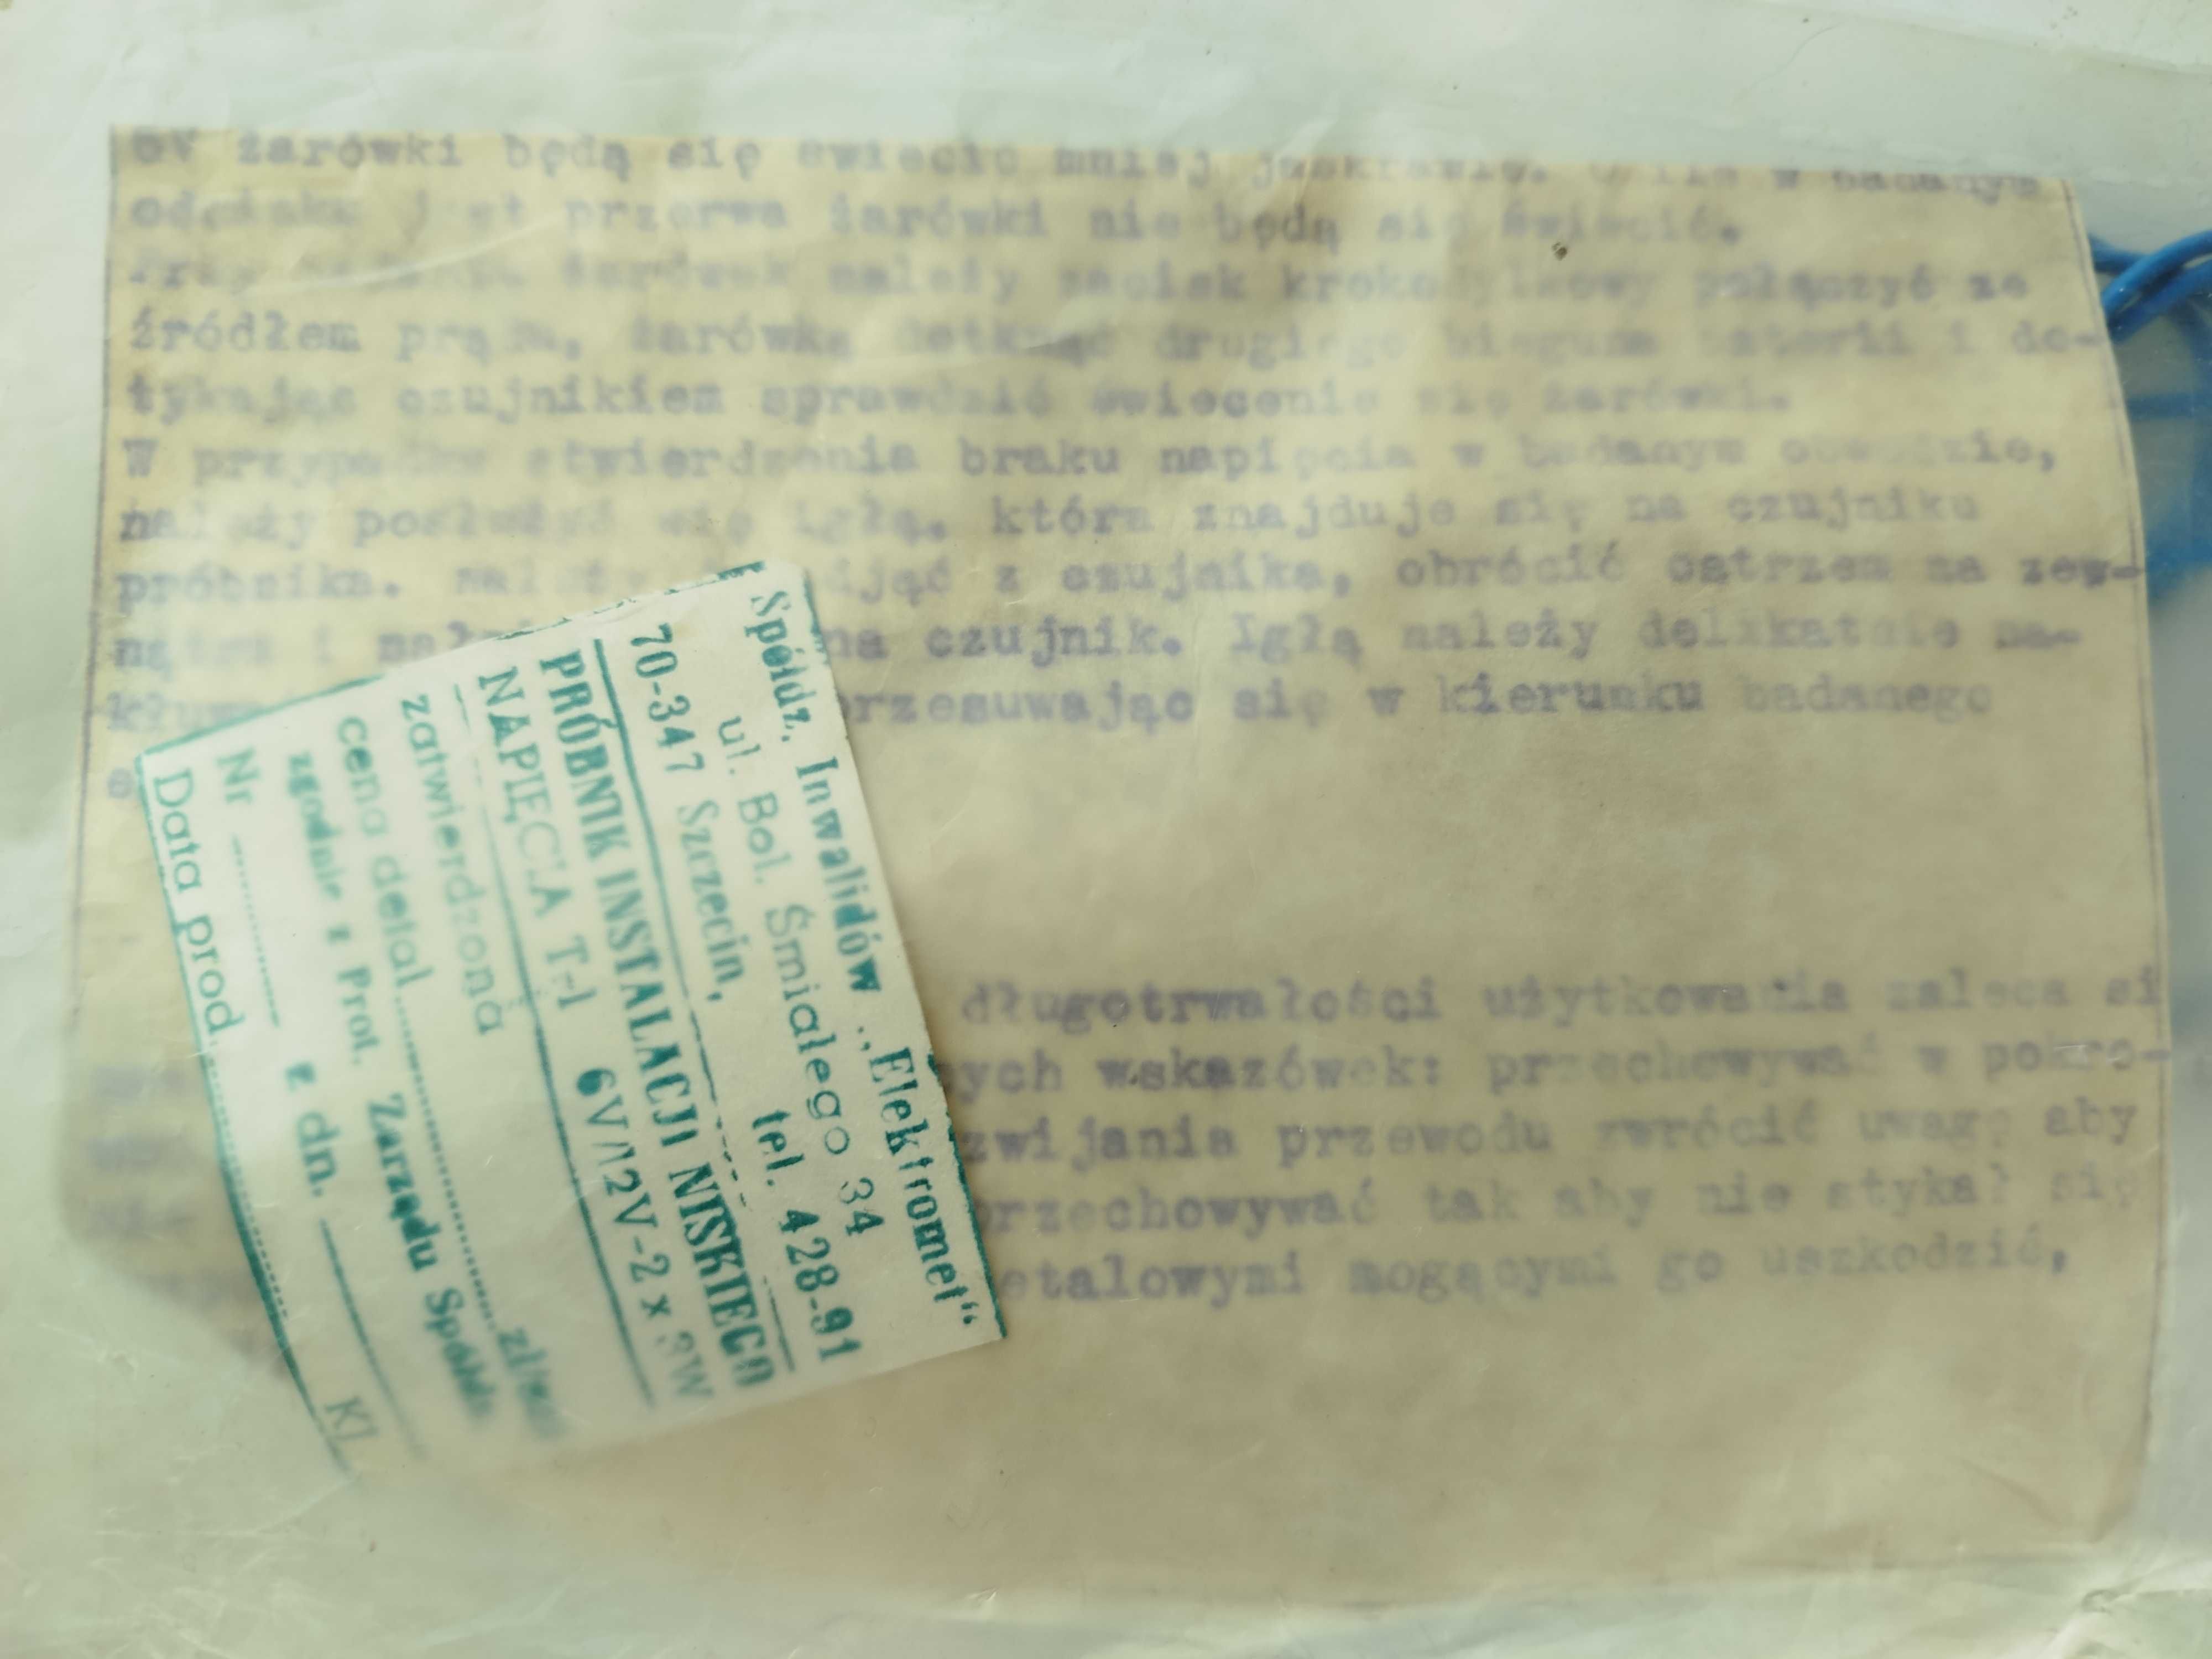 6V żarówki będą się świecić mniej jaskrawie. O ile w badanym
odcinku jest przerwa żarówki nie będą się świecić.
żarówek należy zacisk krokodylkowy połączyć ze
źródłem prądu, żarówką dotknąć drugiego bieguna baterii i do-
tykając czujnikiem sprawdzić świecenie się żarówki.
W przypadku stwierdzenia braku napięcia w badanym obwodzie,
należy posłużyć się igłą, która znajduje się na czujniku
próbnika. należy zdjąć z czujnika, obrócić ostrzem na zew-
nątrz i na czujnik. Igłą należy delikatnie na-
przesuwając się w kierunku badanego
długotrwałości użytkowania zaleca si
ych wskazówek: przechowywać w pokro-
zwijania przewodu zwrócić uwagę aby
przechowywać tak aby nie stykał się
etalowymi mogącymi go uszkodzić,
Spółdz. Inwalidów „Elektromet"
ul. Bol. Śmiałego 34
70-347 Szczecin, tel. 428-91
PRÓBNIK INSTALACJI NISKIEGO
NAPIĘCIA T-1 6V/12V-2 x 3W
zatwierdzona
cena detal.
zgodnie z Prot. Zarządu Spółdz.
Nr z dn.
Data prod. KJ